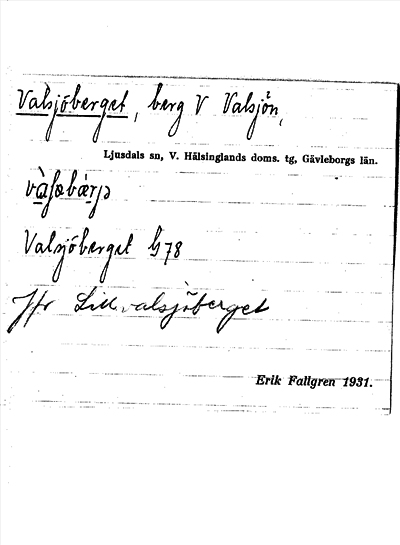 Valsjöberget, berg V Valsjön,
Ljusdals sn, V. Hälsinglands doms. tg, Gävleborgs län.
Valsjöberget G78
Jfr Lillvalsjöberget
Erik Fallgren 1931.